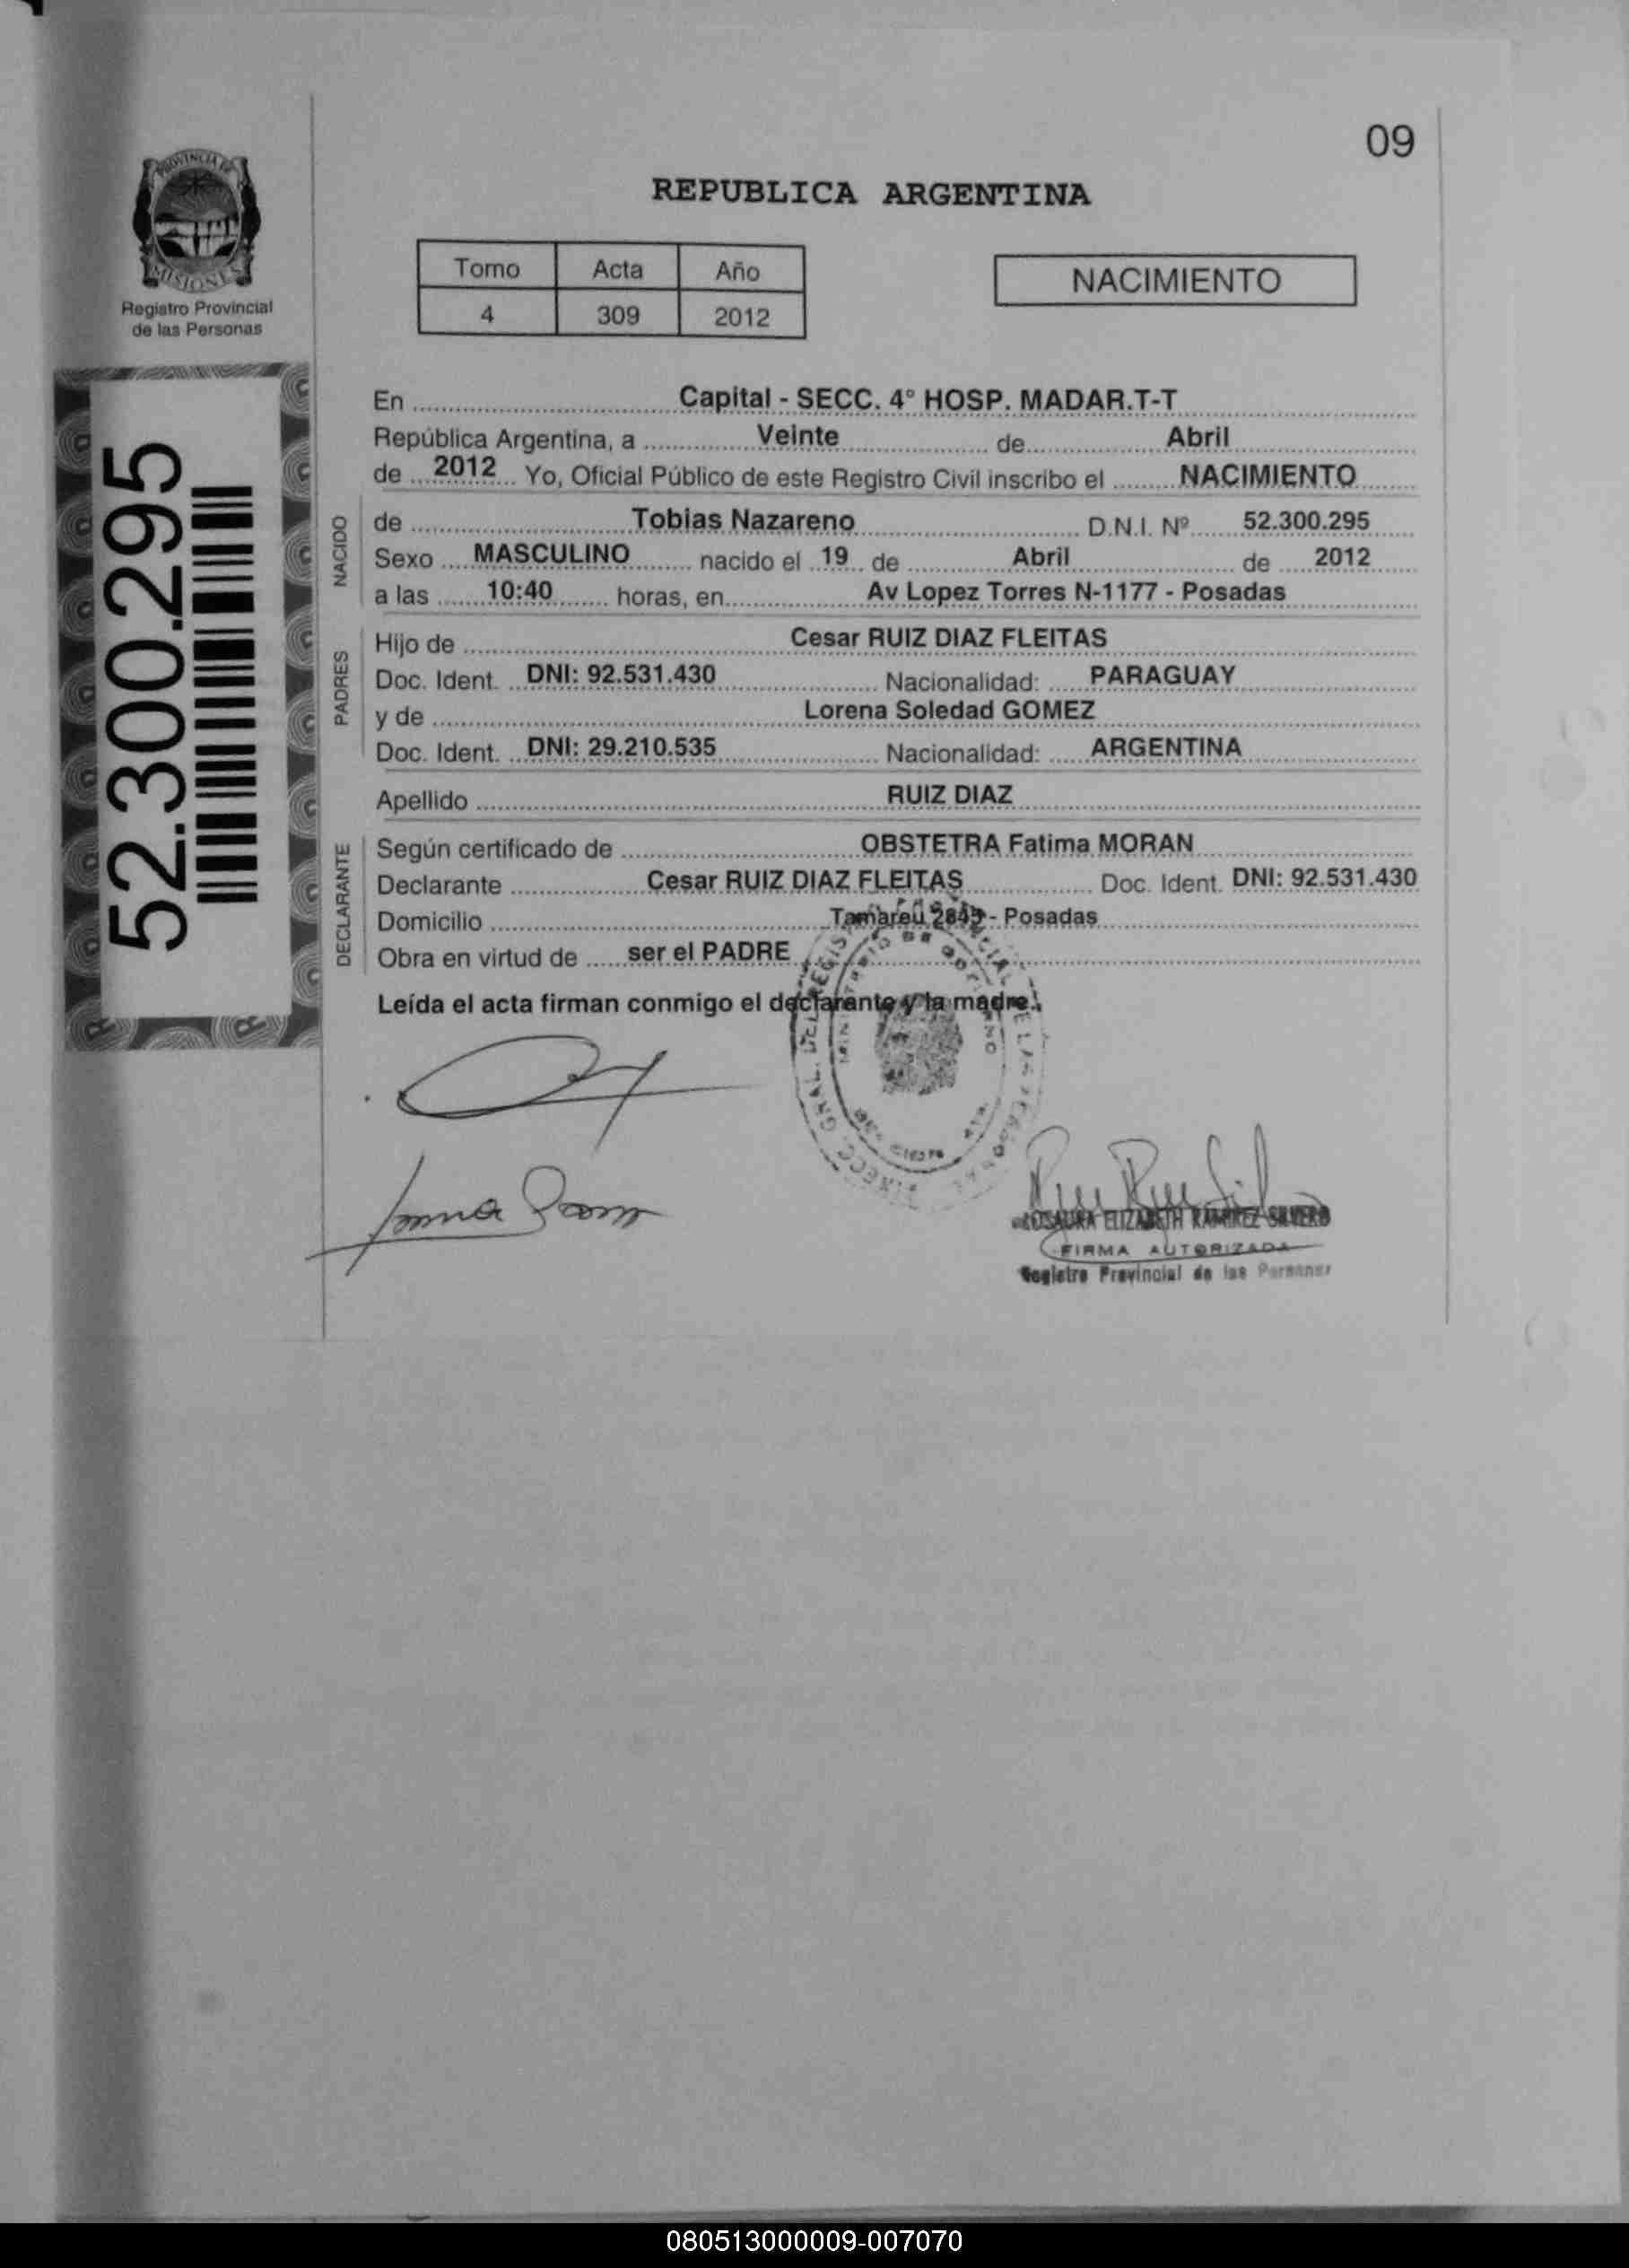 09
PROVINCIA DE
MISIONES
Registro Provincial
de las Personas
REPUBLICA ARGENTINA
Tomo Acta Año
4 309 2012
NACIMIENTO
52.300.295
En Capital - SECC. 4° HOSP. MADAR.T-T
República Argentina, a Veinte de Abril
de 2012 Yo, Oficial Público de este Registro Civil inscribo el NACIMIENTO
NACIDO
de Tobias Nazareno D.N.I. Nº 52.300.295
Sexo MASCULINO nacido el 19 de Abril de 2012
a las 10:40 horas, en Av Lopez Torres N-1177 - Posadas
PADRES
Hijo de Cesar RUIZ DIAZ FLEITAS
Doc. Ident. DNI: 92.531.430 Nacionalidad: PARAGUAY
y de Lorena Soledad GOMEZ
Doc. Ident. DNI: 29.210.535 Nacionalidad: ARGENTINA
Apellido RUIZ DIAZ
DECLARANTE
Según certificado de OBSTETRA Fatima MORAN
Declarante Cesar RUIZ DIAZ FLEITAS Doc. Ident. DNI: 92.531.430
Domicilio - Posadas
Obra en virtud de ser el PADRE
Leída el acta firman conmigo el declarante y la madre.
ROSAURA ELIZABETH RAMIREZ SILVERO
FIRMA AUTORIZADA
Registro Provincial de las Personas
080513000009-007070